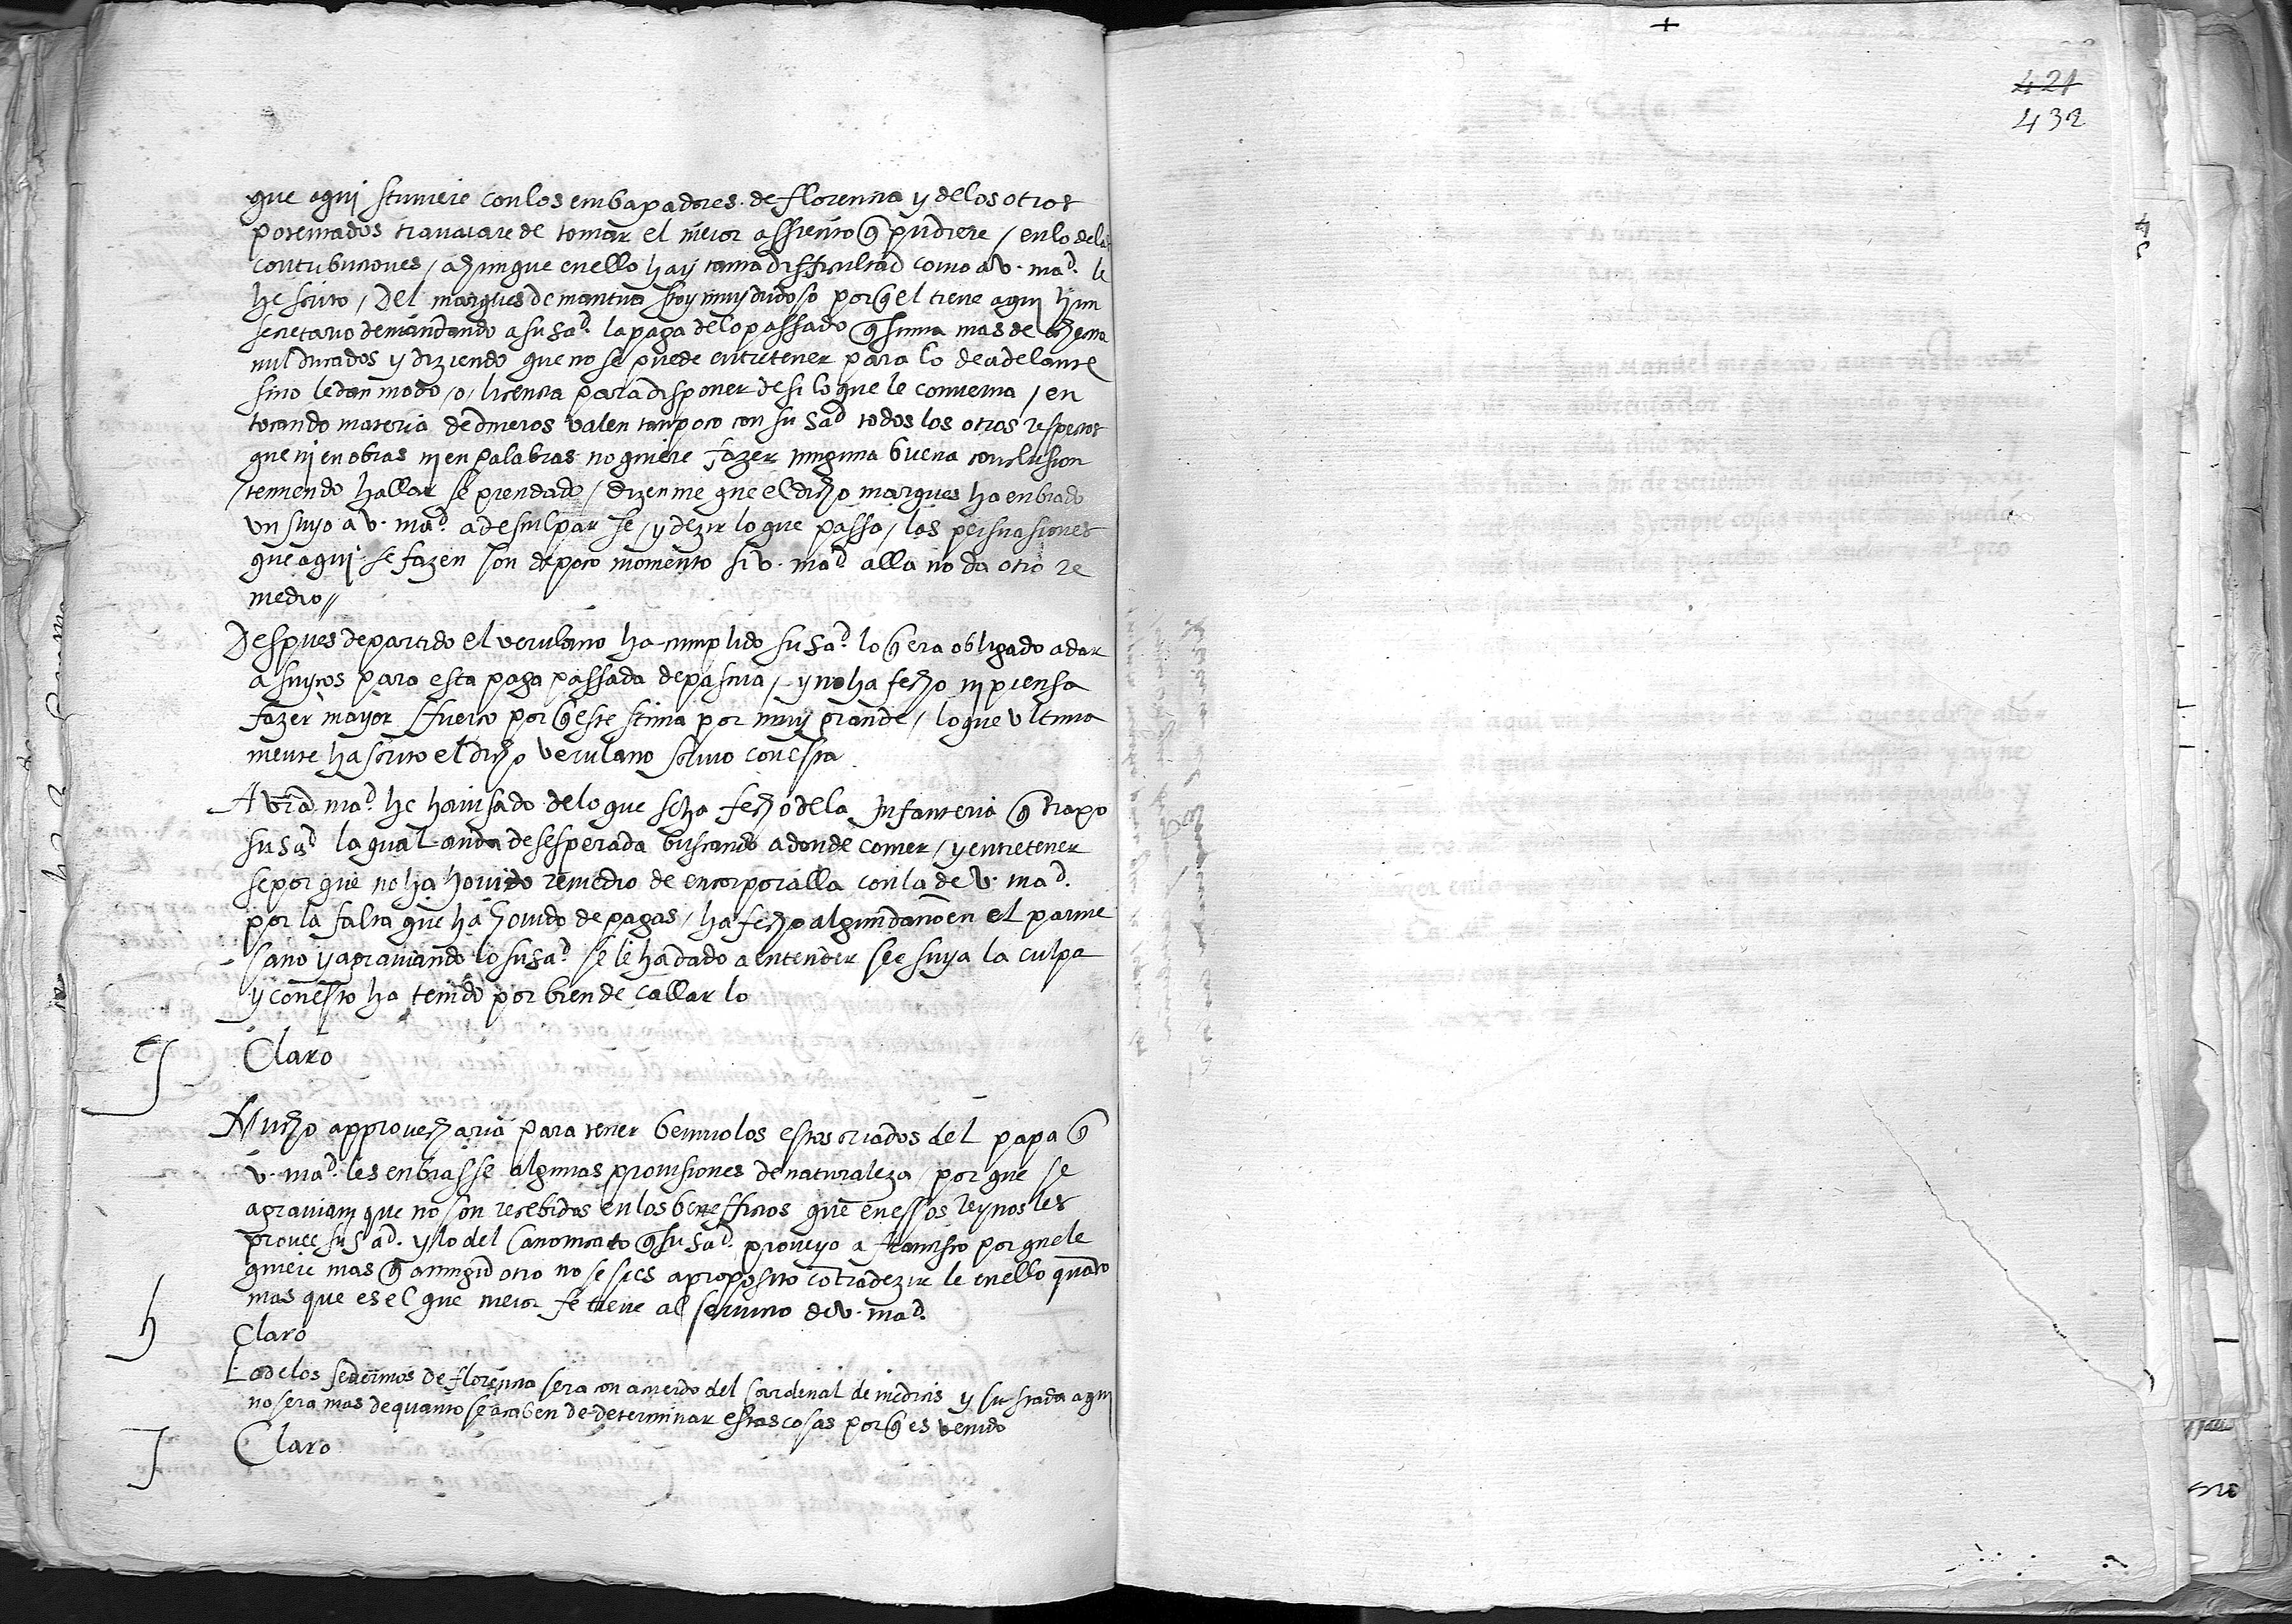 que aquj stuuiere con los embaxadores de florencia y de los otros
potentados trauaiare de tomar el meior assiento q̃ pudiere / en lo de las
contribuciones / ahunque en ello hay tanta difficultad como a v. mad. le
he scrito / Del marques de mantua stoy muy dudoso porq̃ el tiene aquj hun
secretario demandando a su sad. la paga de lo passado q̃ suma mas de
mil ducados y diziendo que no se puede entretener para lo de adelante
sino le dan modo / o / licencia para disponer de si lo que le conuenia / en
tocando materia de dineros valen tan poco con su sad todos los otros respectos
que nj en obras nj en palabras no quiere fazer ninguna buena conclusion
/ temiendo hallar se prendado / dizen me que el dicho marques ha enbiado
vn suyo a v. mad. a desculpar se / y dezir lo que passa / las persuasiones
que aquj se fazen son de poco momento si v. mad alla no da otro re
medio //
Despues de partido el verulano ha cumplido su sad. lo q̃ era obligado a dar
a suyços para esta paga passada de pascua / y no ha fecho nj piensa
fazer mayor sfuerço por q̃ este stima por muy grande / lo que vltima
mente ha scrito el dicho verulano scriuo con esta
A vr̃a mad. he hauisado de lo que se ha fecho de la Infanteria q̃ traxo
su sad la qual anda desesperada buscando a donde comer / y entretener
se por que no ha houido remedio de encorporalla con la de v. mad.
por la falta que ha houido de pagas / ha fecho algun daño en el parme
sano y agrauiando lo su sad. se le ha dado a entender ser suya la culpa
y con esto ha tenido por bien de callar lo
g Claro
Mucho approuecharia para tener beniuolos estos criados del papa q̃
v. mad. les enbiasse algunas prouisiones de naturaleza / por que se
agrauian que no son recebidos en los benefficios que en essos reynos les
prouee su sad. y lo del Canonicato q̃ su sad. proueyo a francisco por que le
quiere mas q̃ a ningũd otro no se si es a proposito cõtradezir le en ello quãto
mas que es el que meior fe tiene al seruicio de v. mad.
h Claro
Lo de los de florencia sera con acuerdo del Cardenal de medicis y su stada aquj
no sera mas de quanto se acaben de determinar estas cosas por q̃ es venido
J Claro
+
421
432